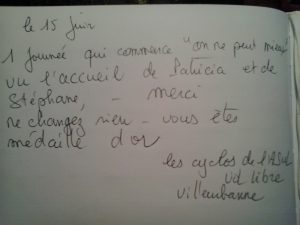 le 15 juin
1 journée qui commence "on ne peut mieux
vu l'accueil de Patricia et de
Stéphane, - merci
ne changez rien - vous êtes
médaille d'or
les cyclos de l'ASUL
vd libre
Villeurbanne